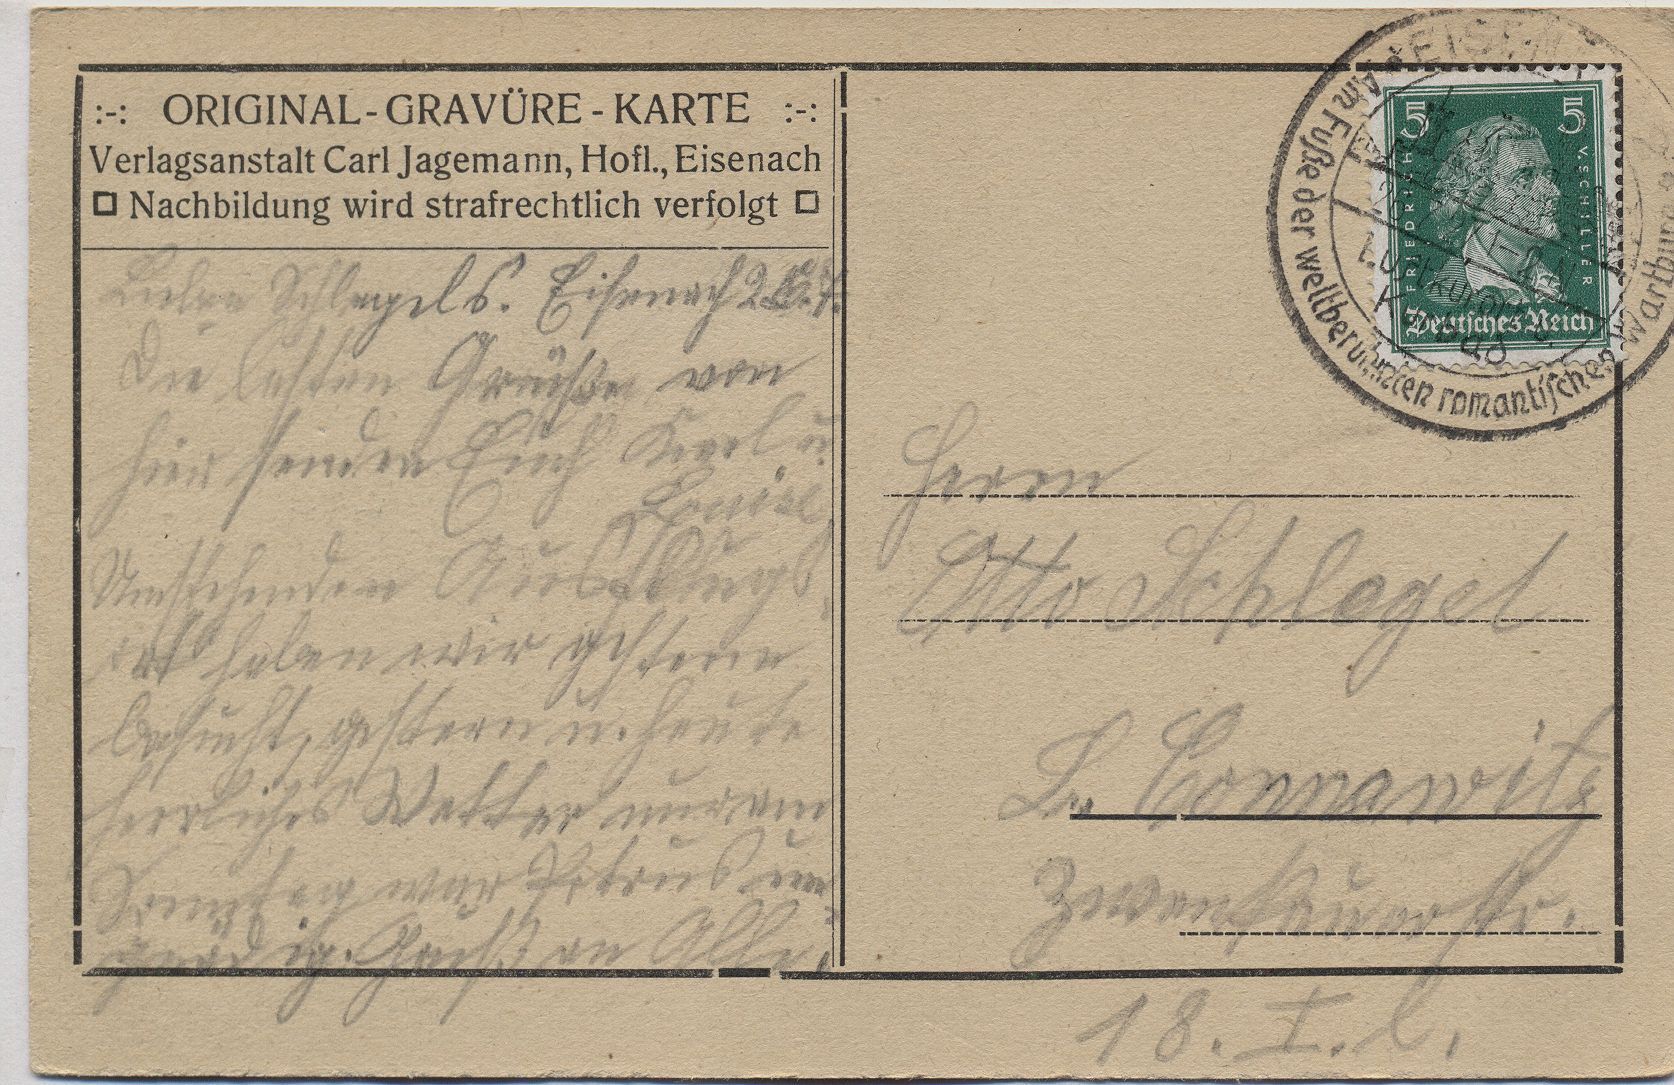 :-: ORIGINAL-GRAVÜRE-KARTE :-:
Verlagsanstalt Carl Jagemann, Hofl., Eisenach
Nachbildung wird strafrechtlich verfolgt
Liebe Schlegels. Eisenach
Die besten Grüße von
hier senden Euch Karl u.
Louise
Umstehenden Ausflugs-
ort haben wir gestern
besucht, gestern u. heute
herrliches Wetter nur am
Sonntag war Petrus un-
gnädig. Gruß an Alle.
5 5
FRIEDRICH V. SCHILLER
Deutsches Reich
EISENACH
Am Fuße der weltberühmten romantischen Wartburg
Herrn
Otto Schlegel
Lr. Connewitz
Zwenkauerstr.
18. I. l.